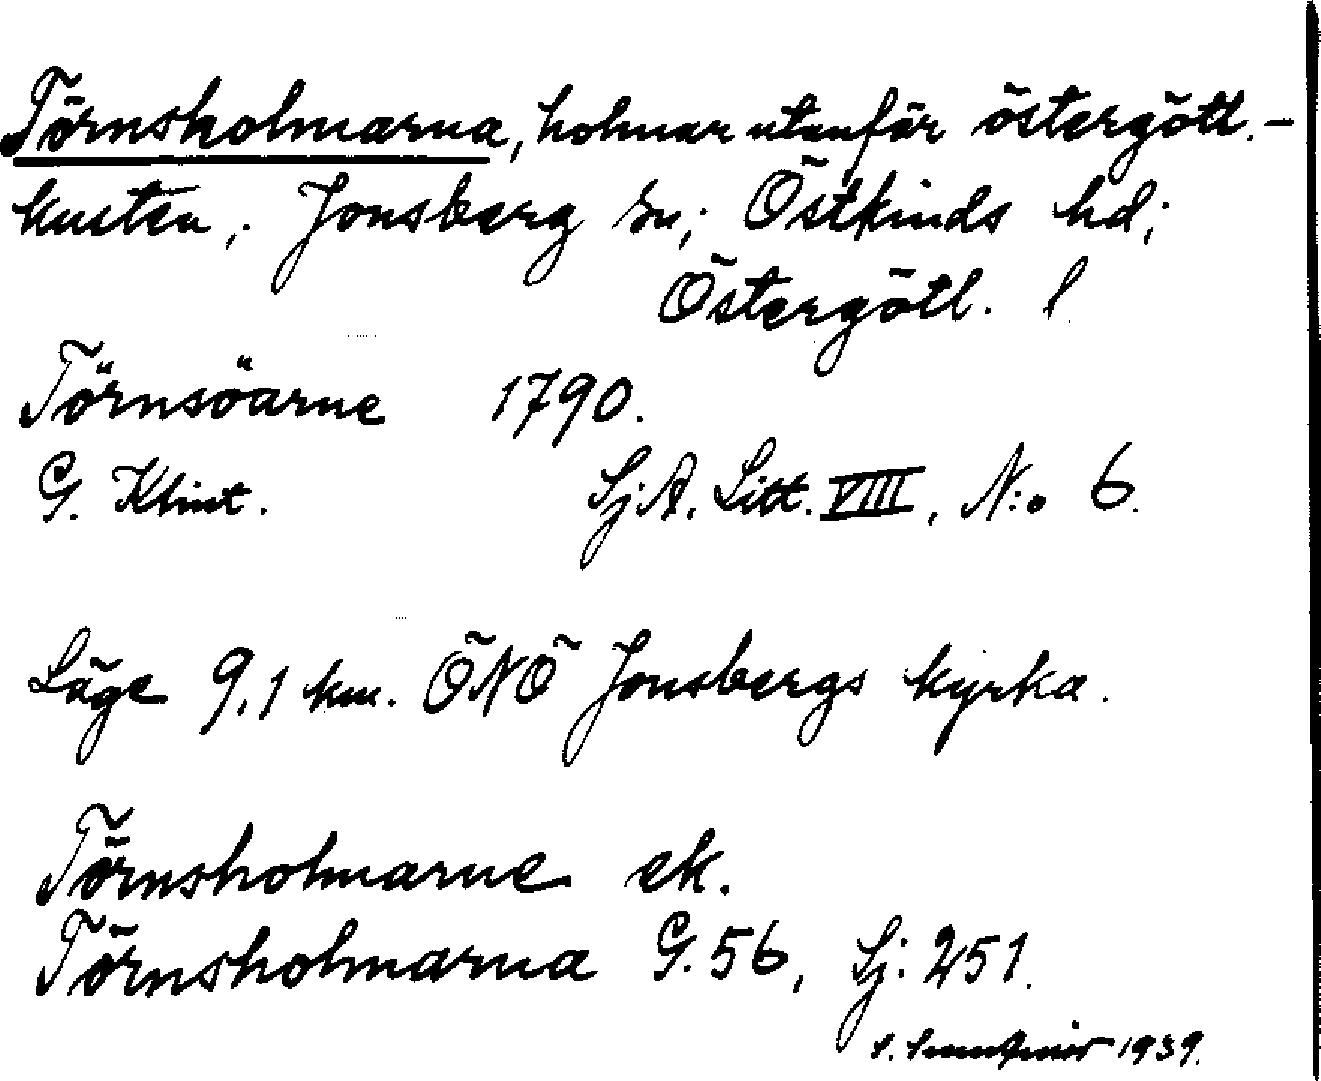 Törnsholmarna, holmar utanför östergötl.-
kusten,. Jonsberg sn; Östkinds hd;
Östergötl. l
Törnsöarne 1790.
G. Klint. Sj.A. Litt. VIII, N:o 6.
Läge 9,1 km. ÖNÖ Jonsbergs kyrka.
Törnsholmarne ek.
Törnsholmarna G. 56, Sj: 251.
1939.